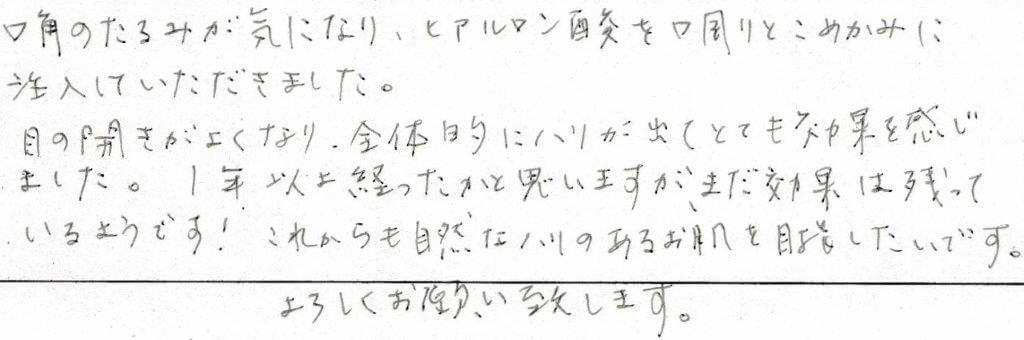 口角のたるみが気になり、ヒアルロン酸を口周りとこめかみに
注入していただきました。
目の開きがよくなり、全体的にハリが出てとても効果を感じ
ました。1年以上経ったかと思いますが、まだ効果は残って
いるようです！ これからも自然なハリのあるお肌を目指したいです。
よろしくお願い致します。